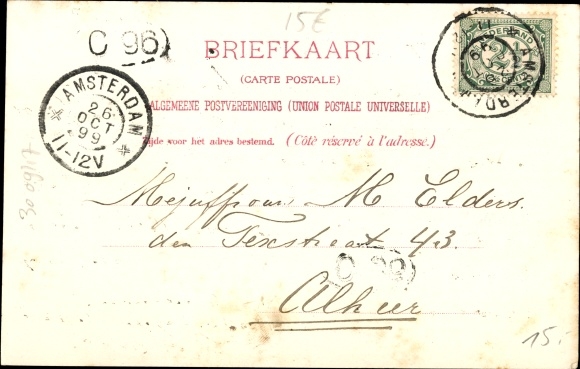 15€
C 96
BRIEFKAART
(CARTE POSTALE)
ALGEMEENE POSTVEREENIGING (UNION POSTALE UNIVERSELLE)
Zijde voor het adres bestemd. (Côté réservé à l'adresse.)
NEDERLAND
2½
AMSTERDAM
26
OCT
99
11-12V
AMSTERDAM
Mejuffrouw M Elders.
den Texstraat 43.
Alhier
15.-